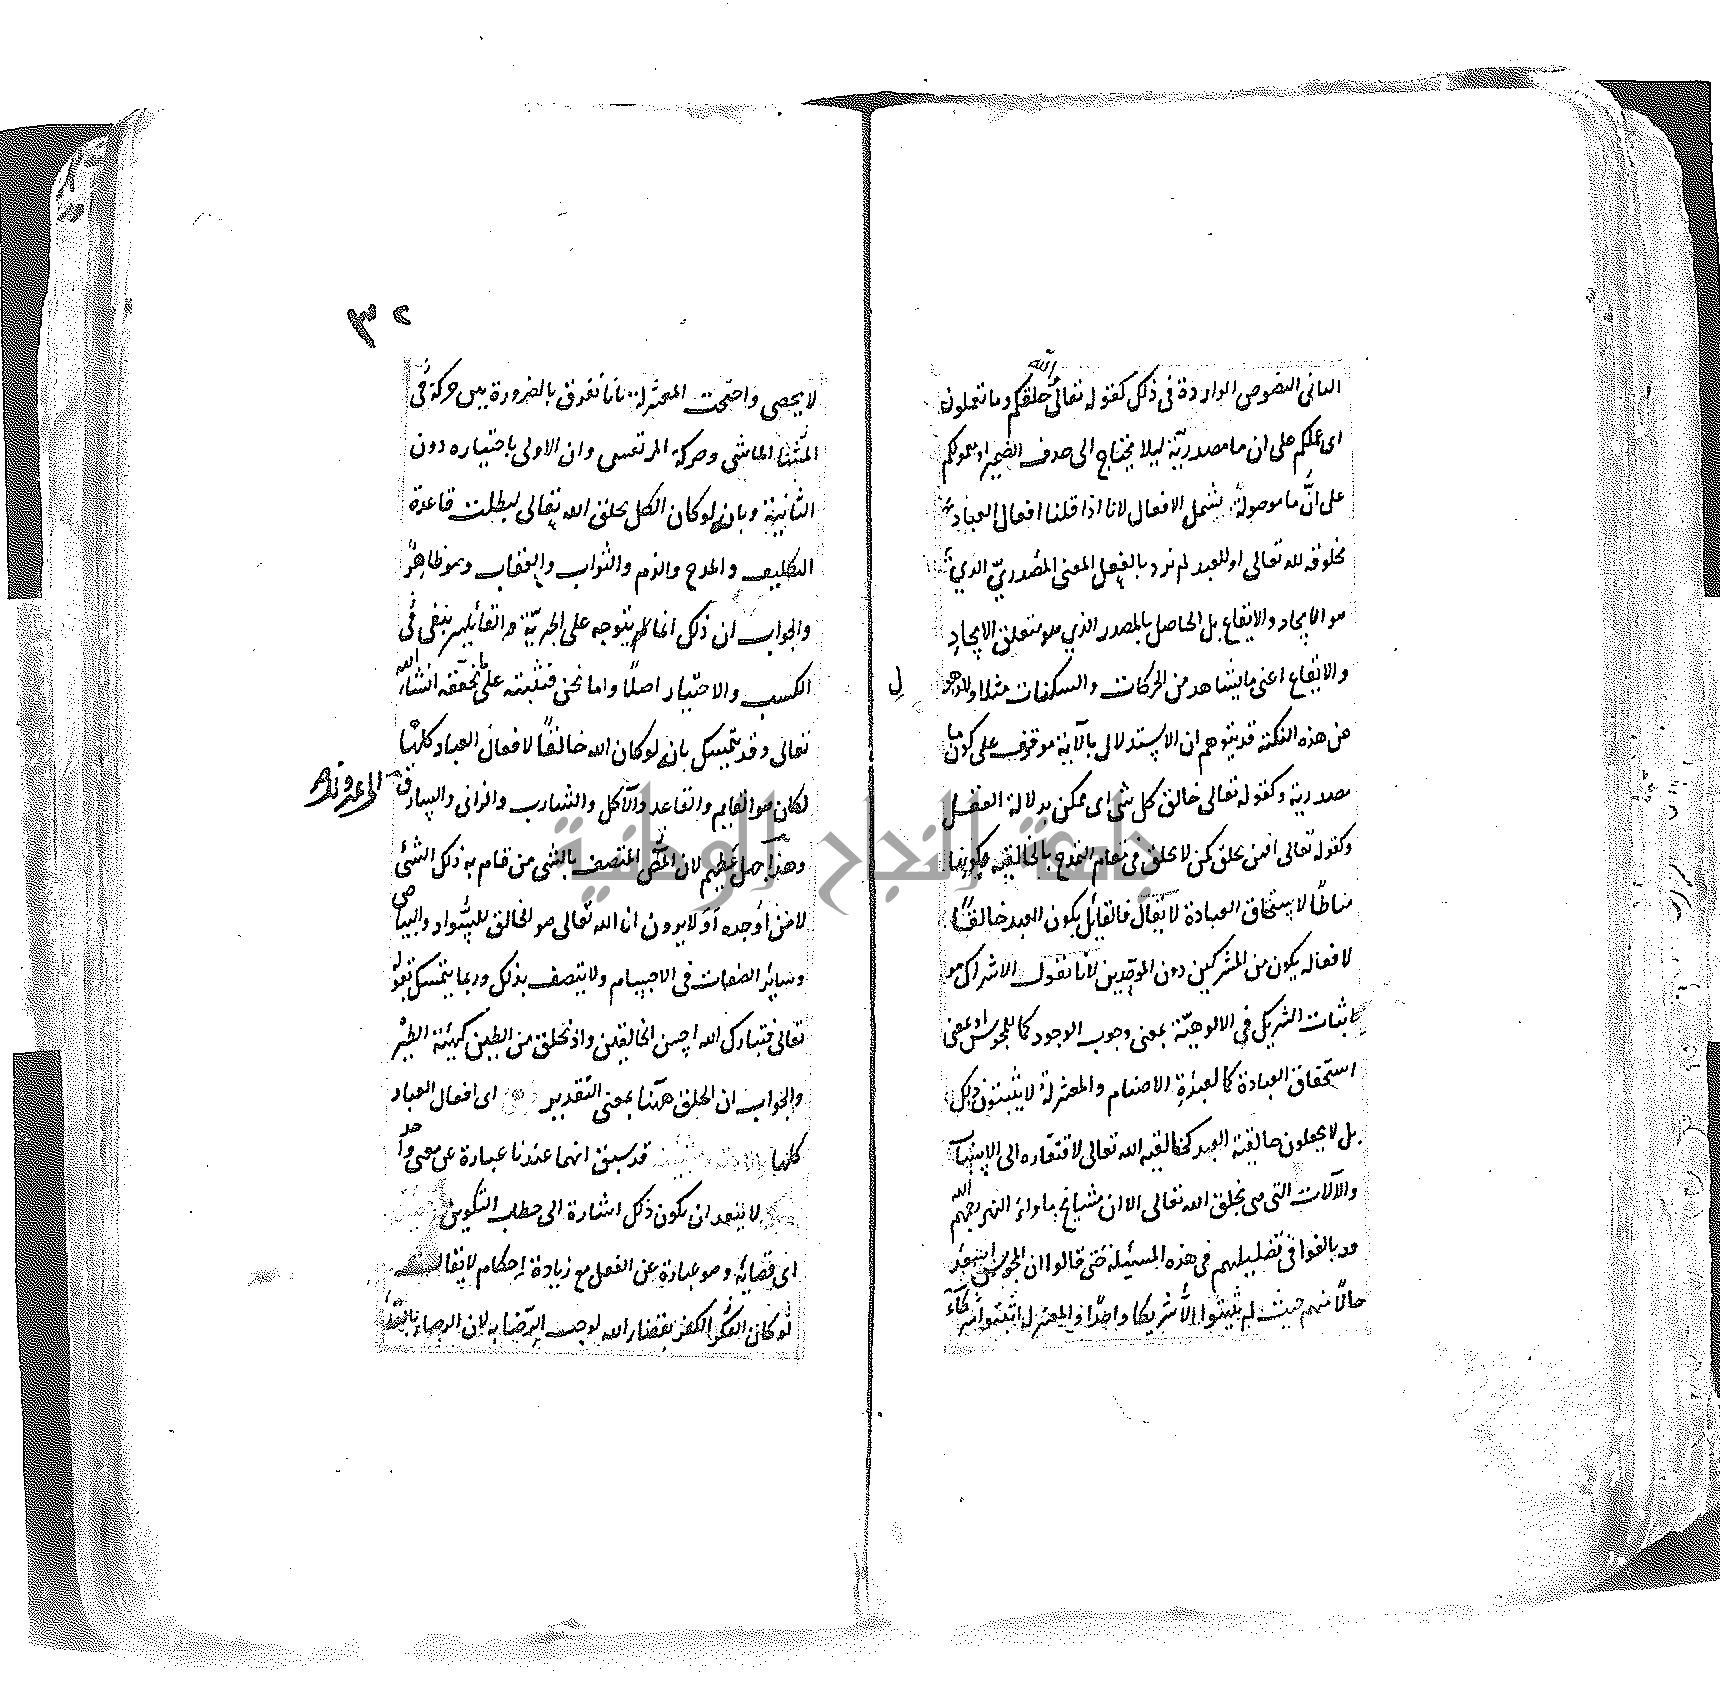 الثاني النصوص الواردة في ذلك كقوله تعالى الله خلقكم وما تعملون
اى عملكم على ان ما مصدريّة ليلا يحتاج الى حذف الضمير او معمولكم
على انّ ما موصولة يشمل الافعال لانا اذا قلنا افعال العباد
مخلوقه لله تعالى او للعبد لم نرد بالفعل المعنى المصدريّ الذي
هو الايجاد والايقاع بل الحاصل بالمصدر الذي هو متعلق الايجاد
والايقاع اعنى ما يشاهد من الحركات والسكنات مثلا وللذهول
عن هذه النكتة قد يتوهم ان الاستدلال بالآية موقوف على كون ما
مصدرية وكقوله تعالى خالق كل شئ اى ممكن بدلالة العقل
وكقوله تعالى افمن يخلق كمن لا يخلق في مقام التمدح بالخالقية وكونها
مناطًا لاستحقاق العبادة لا يقال فالقائل بكون العبد خالقًا
لافعاله يكون من المشركين دون الموحّدين لانا نقول الاشراك هو
اثبات الشريك في الالوهيّة بمعنى وجوب الوجود كما للمجوس او بمعنى
استحقاق العبادة كما لعبدة الاصنام والمعتزلة لا يثبتون ذلك
بل لا يجعلون خالقية العبد كخالقية الله تعالى لافتقاره الى الاسباب
والآلات التى هى بخلق الله تعالى الا ان مشايخ ما وراء النهر رحمهم الله
قد بالغوا في تضليلهم في هذه المسئلة حتى قالوا ان المجوس اسعد
حالًا منهم حيث لم يثبتوا الّا شريكا واحدًا والمعتزلة اثبتوا شركآء
٣٢
لا يحصى واحتجت المعتزلة بانا نفرق بالضرورة بين حركة
الماشى وحركة المرتعس وان الاولى باختياره دون
الثانية وبانه لو كان الكل بخلق الله تعالى لبطلت قاعدة
التكليف والمدح والذم والثواب والعقاب وهو ظاهرٌ
والجواب ان ذلك انما يتوجه على الجبريّة القائلين بنفى
الكسب والاختيار اصلًا واما نحن فنثبته على ما نحققه انشاء الله
تعالى وقد يتمسك بانه لو كان الله خالقًا لافعال العباد كلها
لكان هو القايم والقاعد والآكل والشارب والزانى والسارق الى غير ذلك
وهذا جهل عظيم لان المتصف بالشى من قام به ذلك الشئ
لا من أوجده أو لا يرون ان الله تعالى هو الخالق للسّواد والبياض
وسائر الصفات في الاجسام ولا يتصف بذلك وربما يتمسك بقوله
تعالى فتبارك الله احسن الخالقين واذ تخلق من الطين كهيئة الطير
والجواب ان الخلق ههنا بمعنى التقدير اى افعال العباد
كلها قد سبق انهما عندنا عبارة عن معنى واحد
لا يبعد ان يكون ذلك اشارة الى خطاب التكوين
اى قضائه وهو عبارة عن الفعل مع زيادة إحكام لا يقال
لو كان الكفر بقضاء الله لوجب الرّضا به لان الرضاء بالقضاء